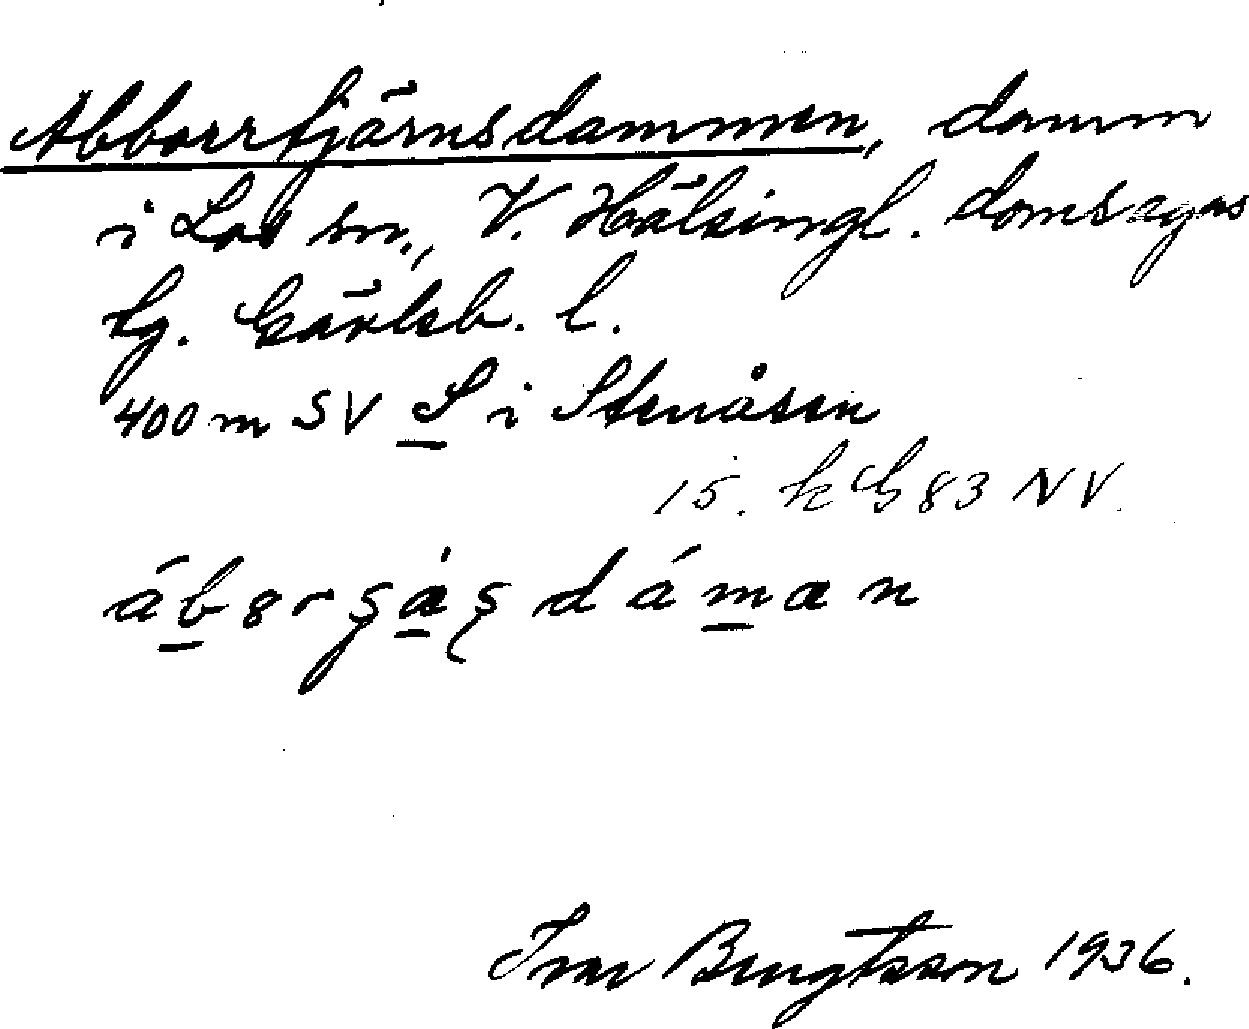 Abborrtjärnsdammen, damm
i Los sn., V. Hälsingl. domsagas
tg. Gävleb. l.
400 m SV S i Stenåsen
15. k G 83 NV.
Ivar Bengtsson 1936.